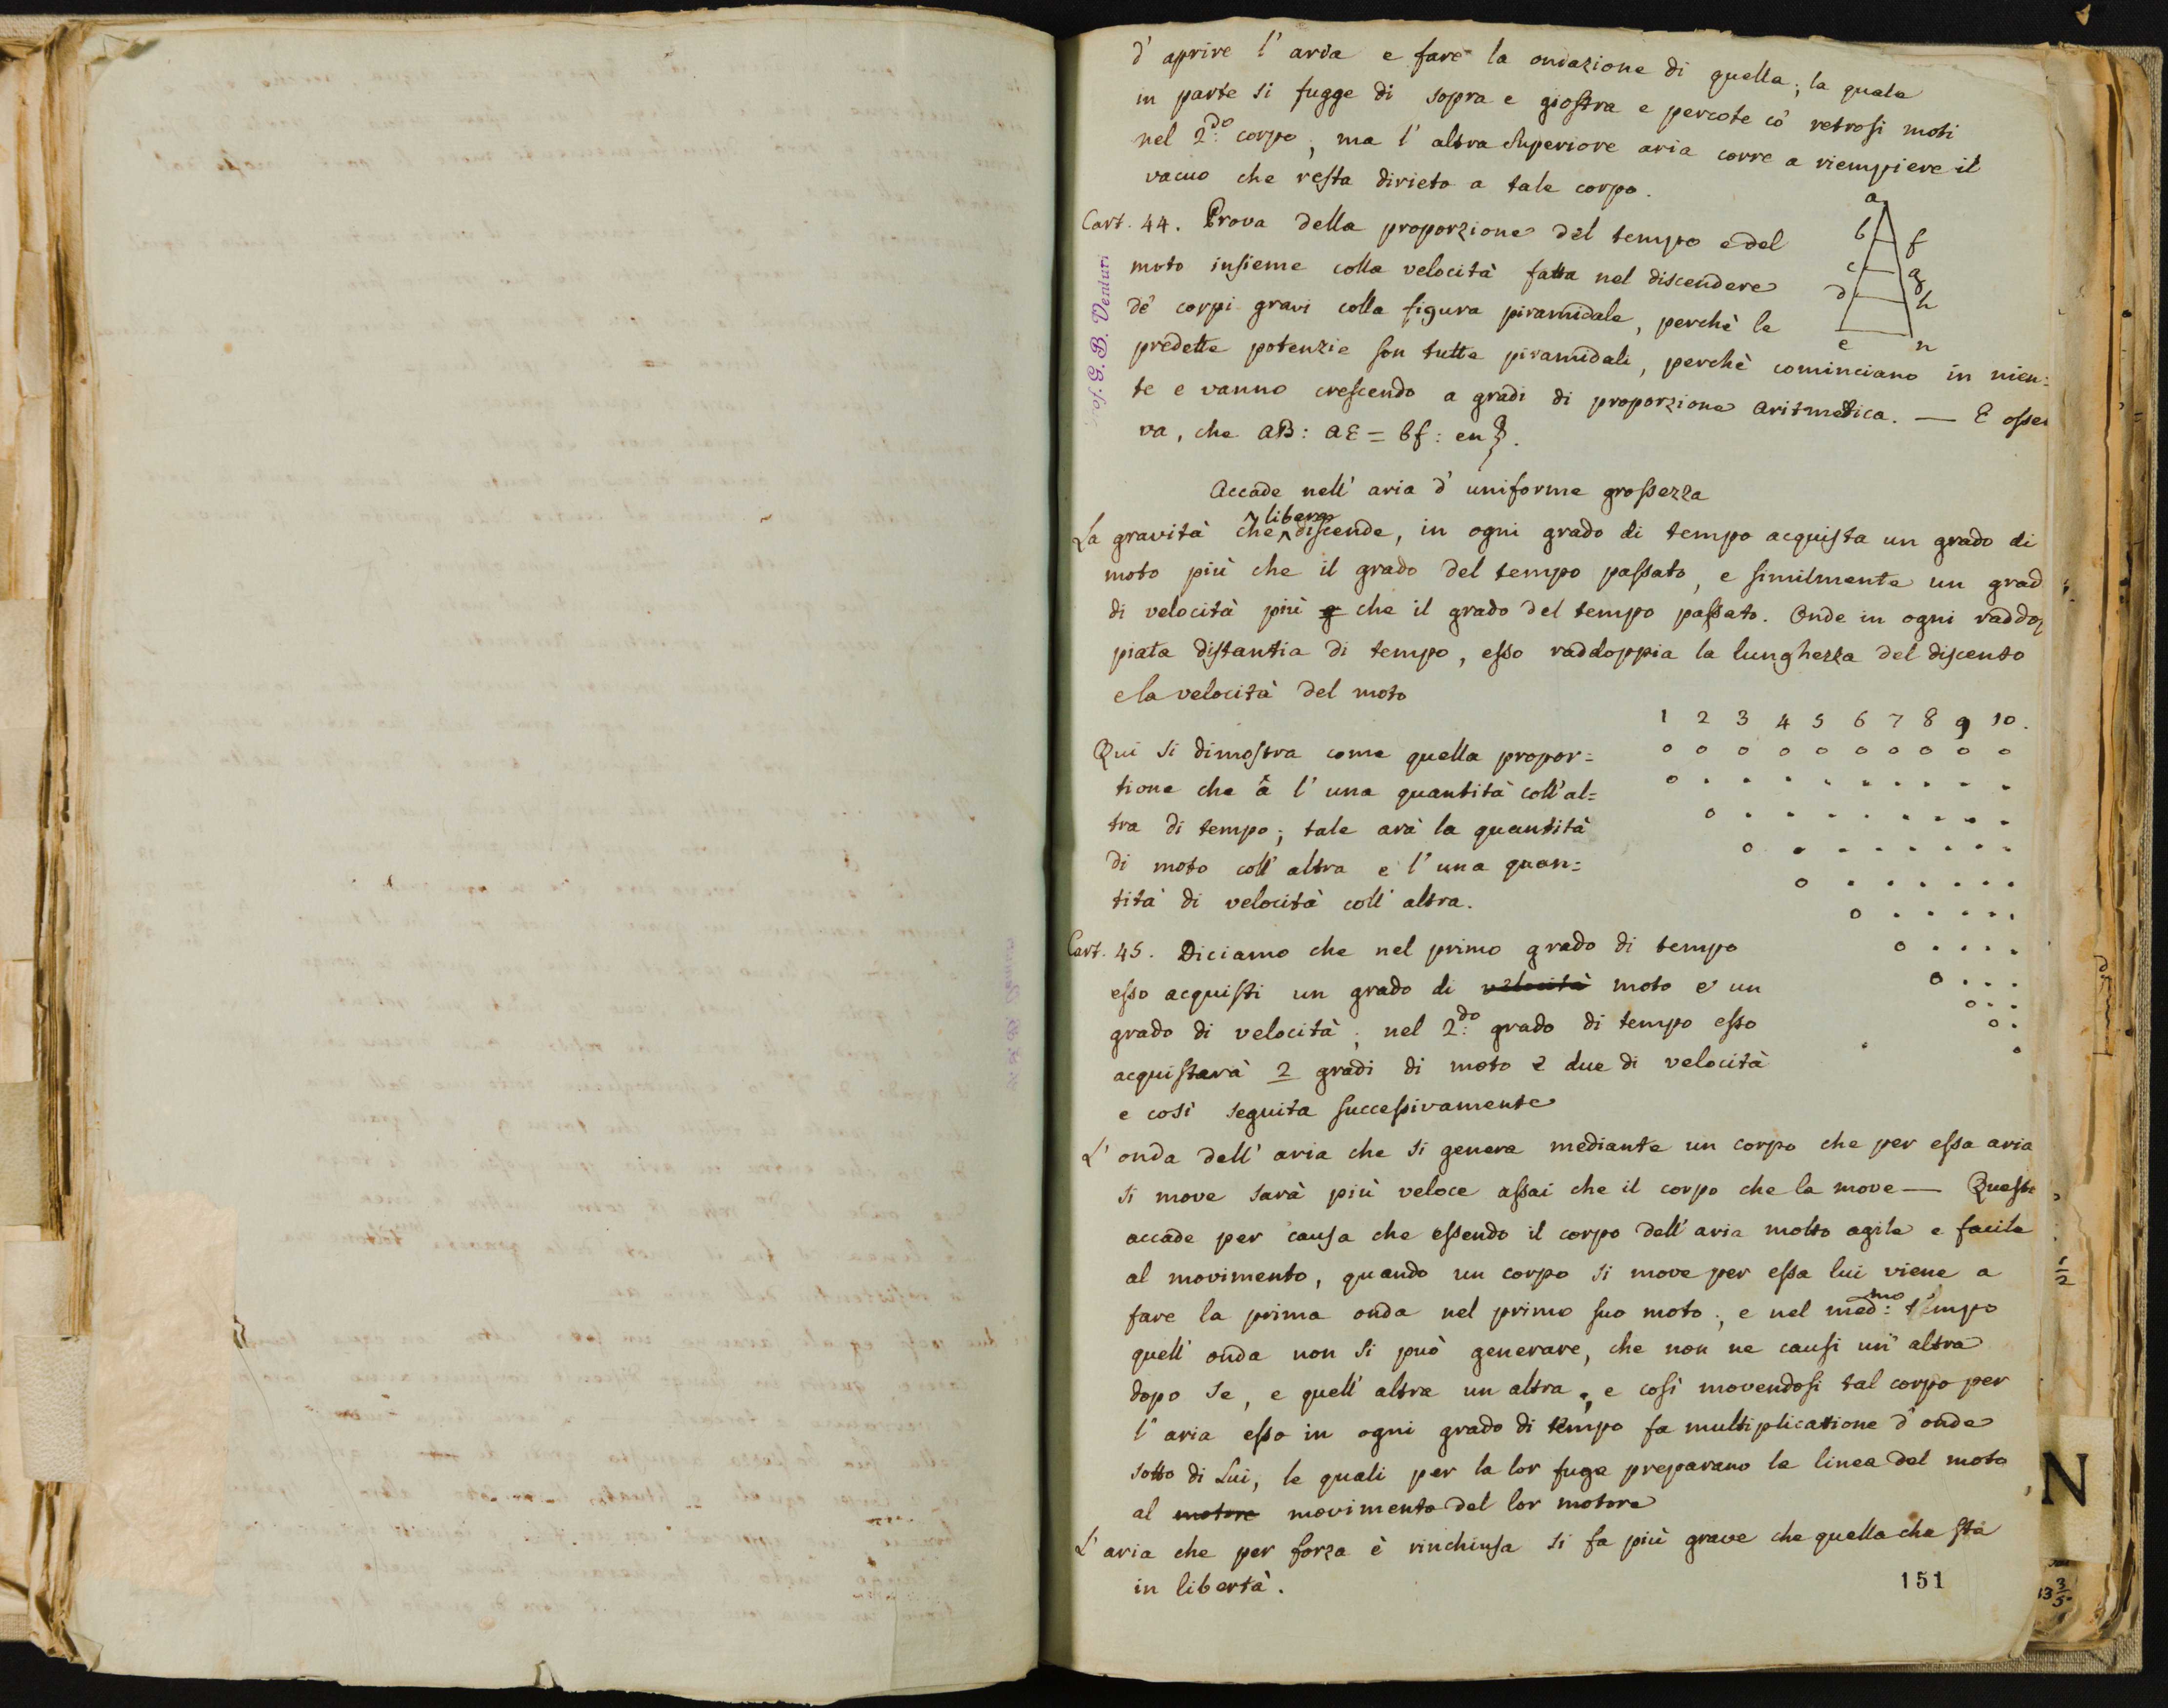 d' aprire l' aria e fare la ondazione di quella; la quale
in parte si fugge di sopra e giostra e percote co' retrosi moti
nel 2.do corpo; ma l' altra superiore aria corre a riempiere il
vacuo che resta dirieto a tale corpo.
Cart. 44. Prova della proporzione del tempo e del
moto insieme colla velocità fatta nel discendere
de' corpi gravi colla figura piramidale, perchè le
predette potenzie son tutte piramidali, perchè cominciano in nien=
te e vanno crescendo a gradi di proporzione aritmetica. — E osser
va, che aB: aE = bf: en}.
a
b f
c g
d h
e n
Prof. G. B. Venturi
Accade nell' aria d' uniforme grossezza
libera
La gravità che discende, in ogni grado di tempo acquista un grado di
moto più che il grado del tempo passato, e similmente un grad
di velocità più che il grado del tempo passato. Onde in ogni raddop
piata distantia di tempo, esso raddoppia la lunghezza del discento
e la velocità del moto
1 2 3 4 5 6 7 8 9 10.
Qui si dimostra come quella propor=
tione che â l' una quantità coll' al=
tra di tempo; tale arà la quantità
di moto coll' altra e l' una quan=
tità di velocità coll' altra.
Cart. 45. Diciamo che nel primo grado di tempo
esso acquisti un grado di velocità moto e un
grado di velocità; nel 2.do grado di tempo esso
acquistarà 2 gradi di moto e due di velocità
e così seguita successivamente
L' onda dell' aria che si genera mediante un corpo che per essa aria
si move sarà più veloce assai che il corpo che la move — Questo
accade per causa che essendo il corpo dell' aria molto agile e facile
al movimento, quando un corpo si move per essa lui viene a
fare la prima onda nel primo suo moto; e nel med:mo tempo
quell' onda non si può generare, che non ne causi un' altra
dopo se, e quell' altra un altra; e così movendosi tal corpo per
l' aria esso in ogni grado di tempo fa multiplicatione d' onde
sotto di Lui, le quali per la lor fuga preparano la linea del moto
al motore movimento del lor motore
L' aria che per forza è rinchiusa si fa più grave che quella che sta
in libertà.
151
N